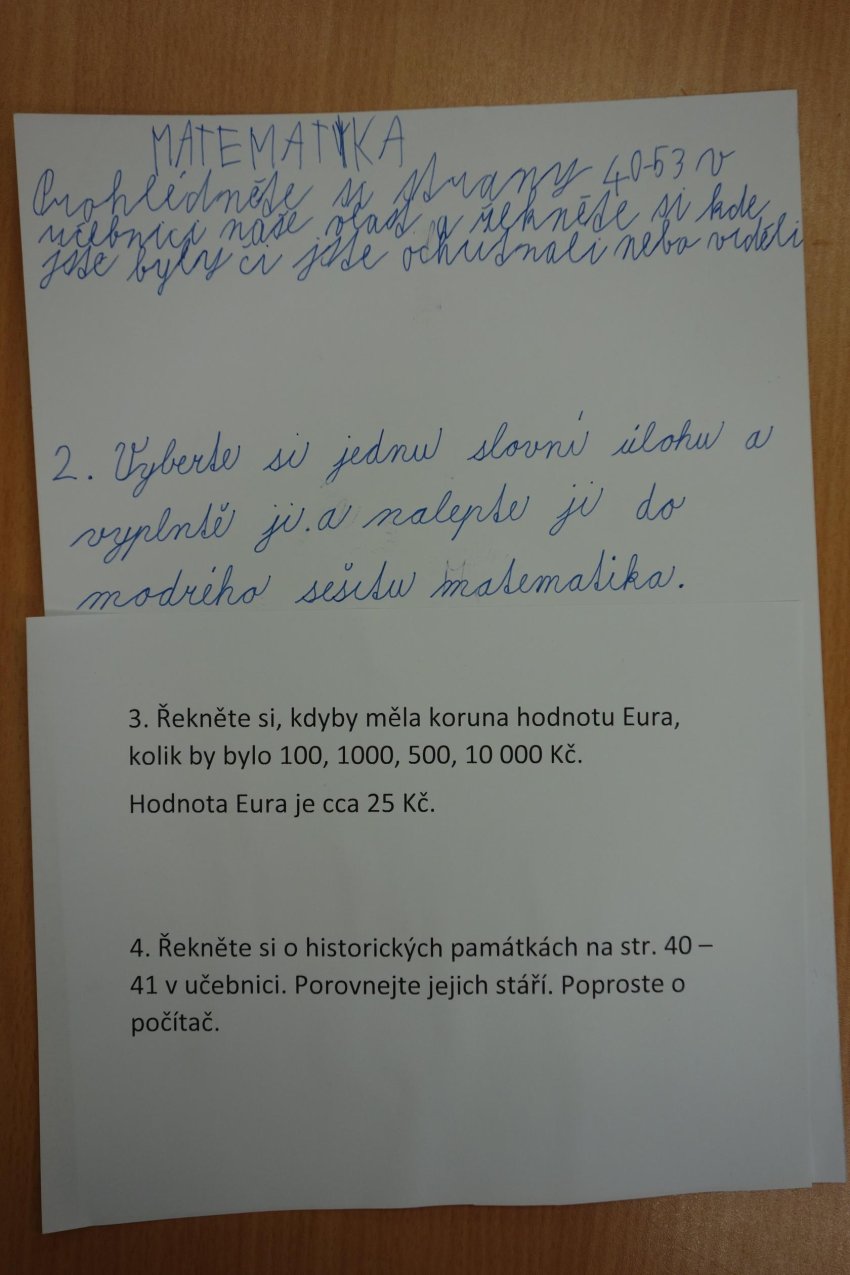 MATEMATIKA
Prohlédněte si strany 40-53 v
učebnici naše vlast a řekněte si kde
jste byly či jste ochutnali nebo viděli
2. Vyberte si jednu slovní úlohu a
vyplntě ji.a nalepte ji do
modrého sešitu matematika.
3. Řekněte si, kdyby měla koruna hodnotu Eura,
kolik by bylo 100, 1000, 500, 10 000 Kč.
Hodnota Eura je cca 25 Kč.
4. Řekněte si o historických památkách na str. 40 –
41 v učebnici. Porovnejte jejich stáří. Poproste o
počítač.